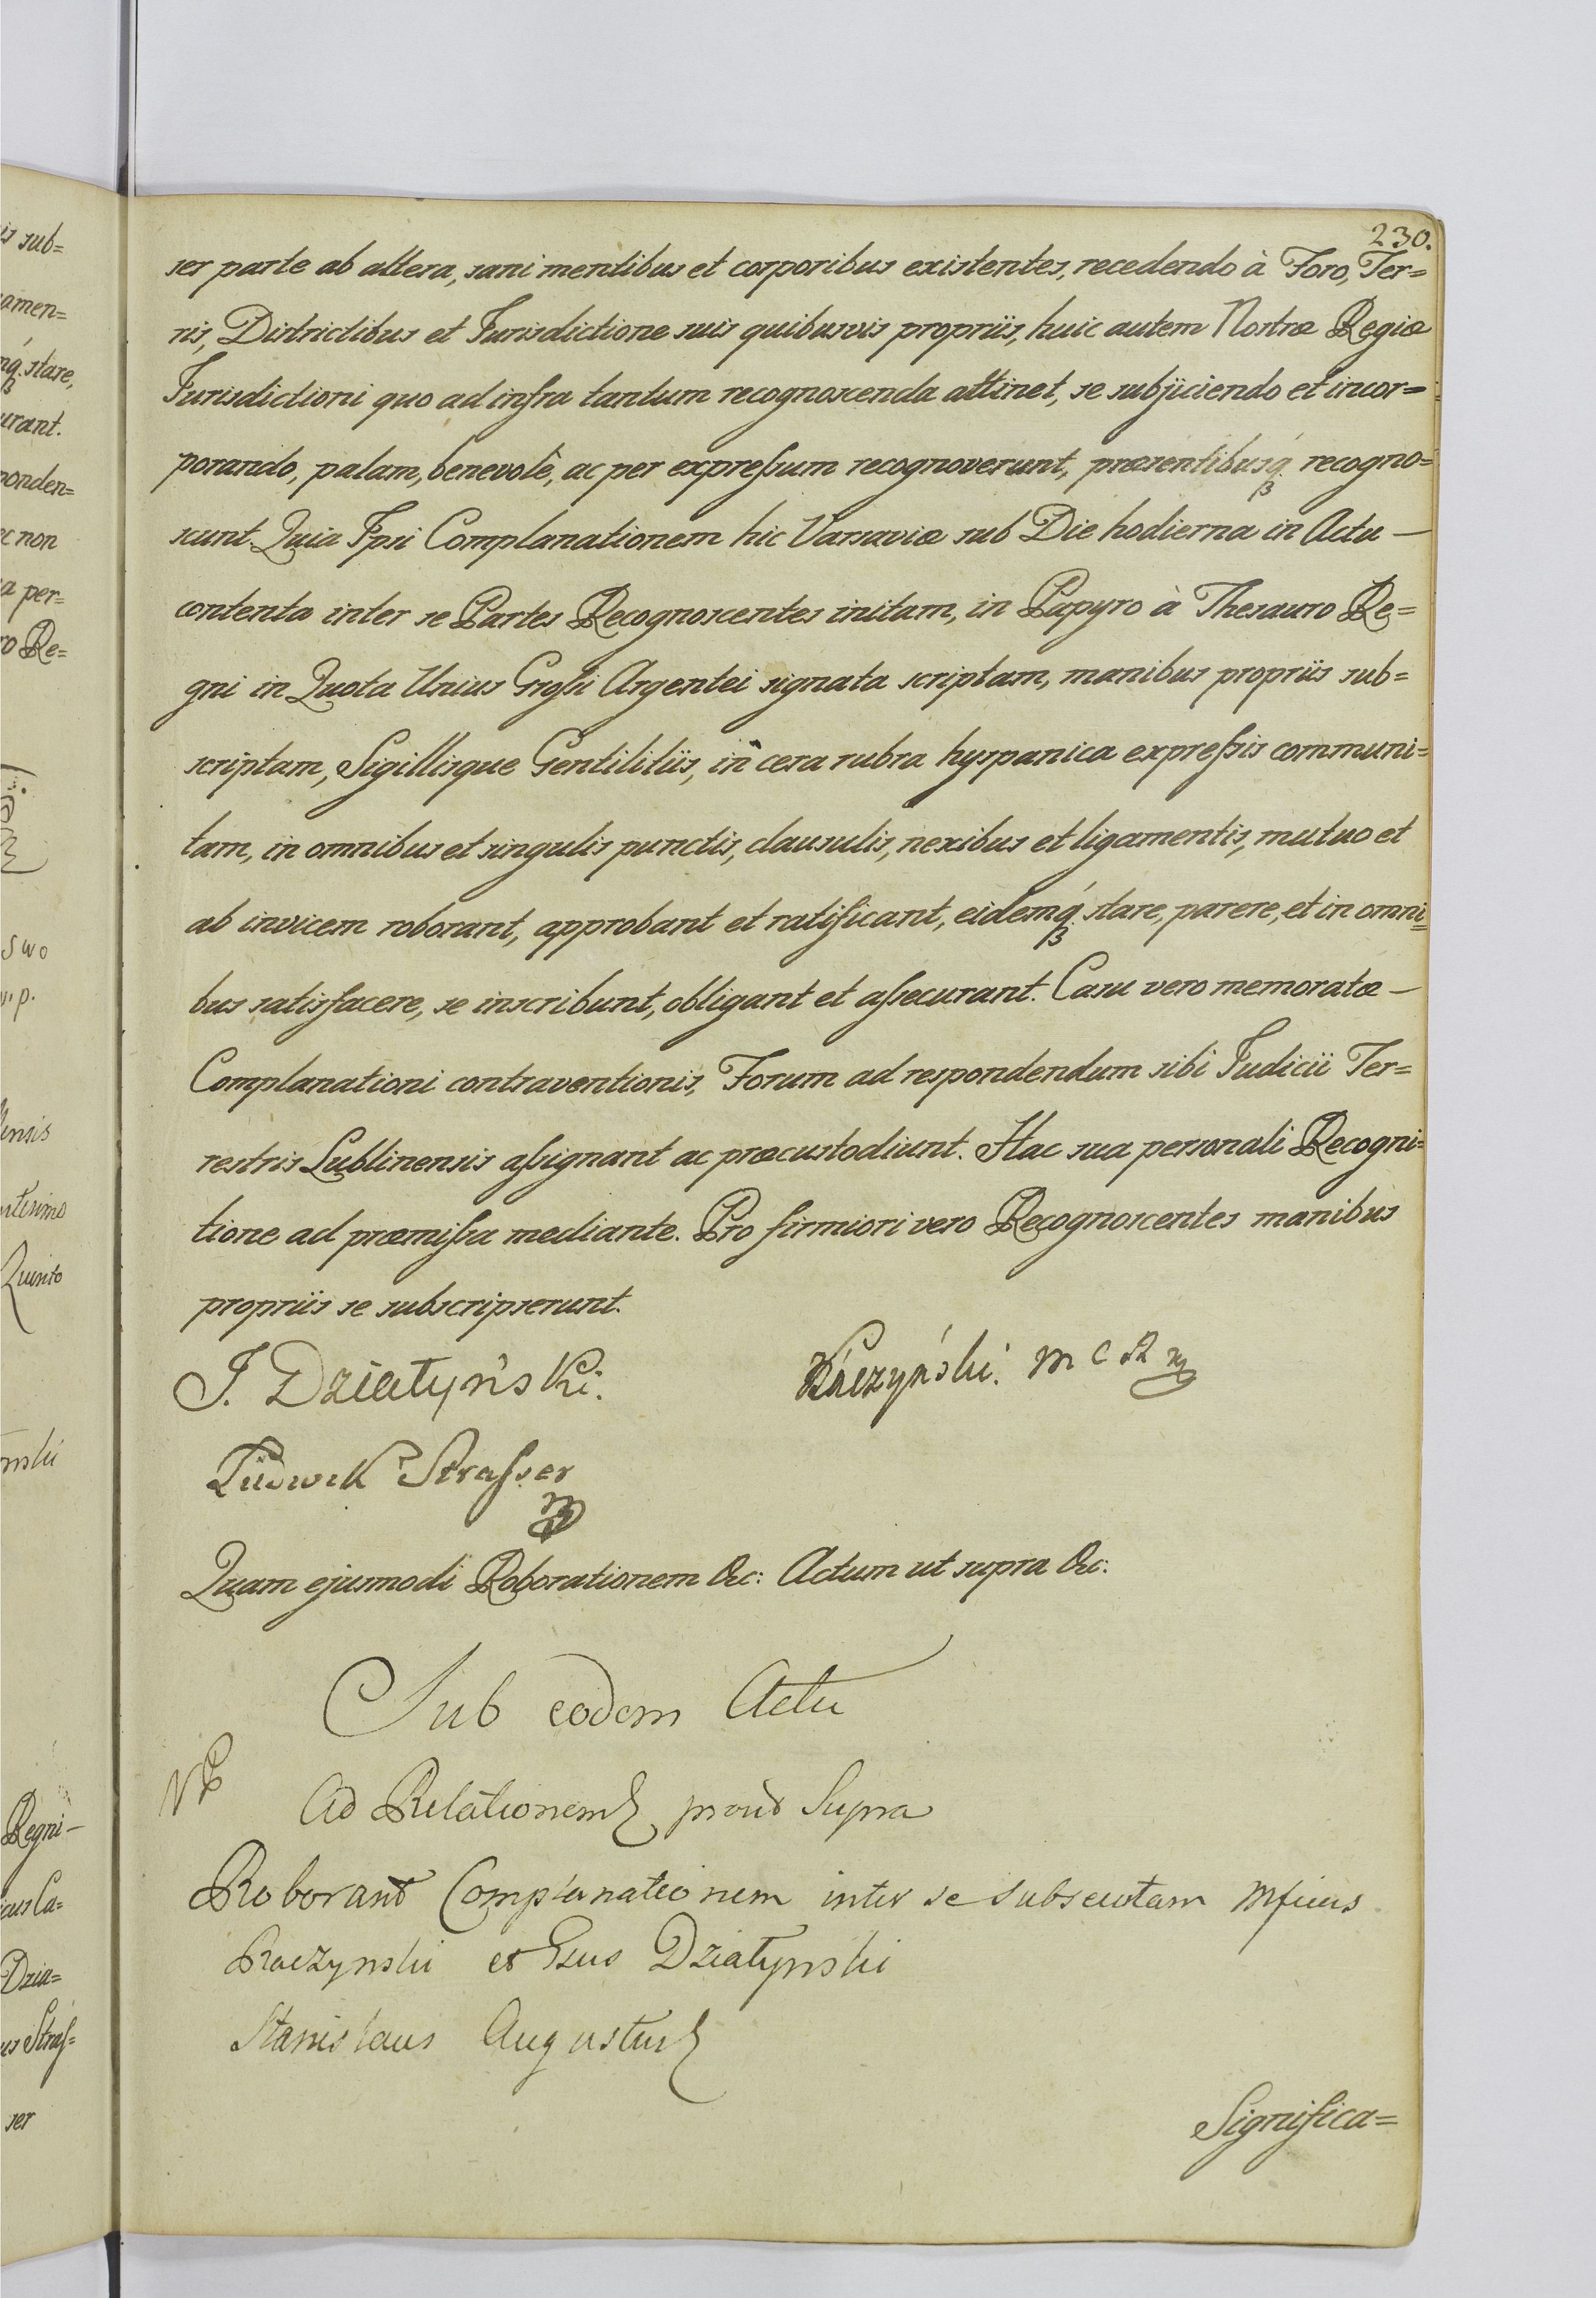 230.
ser parte ab altera, sani mentibus et corporibus existentes, recedendo à Foro, Ter=
ris, Districtibus et Jurisdictione suis quibusvis propriis, huic autem Nostræ Regiæ
Jurisdictioni quo ad infra tantum recognoscenda attinet, se subjiciendo et incor=
porando, palam, benevolè, ac per expreſsum recognoverunt, præsentibusq́ꝫ recogno=
scunt. Quia Ipsi Complanationem hic Varsaviæ sub Die hodierna in Actu —
contenta inter se Partes Recognoscentes initam, in Papyro à Thesauro Re=
gni in Quota Unius Groſsi Argentei signata scriptam, manibus propriis sub=
scriptam, Sigillisque Gentilitiis, in cera rubra hyspanica expreſsis communi=
tam, in omnibus et singulis punctis, clausulis, nexibus et ligamentis, mutuo et
ab invicem roborant, approbant et ratificant, eidemq́ꝫ stare, parere, et in omni=
bus satisfacere, se inscribunt, obligant et aſsecurant. Casu vero memoratæ —
Complanationi contraventionis, Forum ad respondendum sibi Judicii Ter=
restris Lublinensis aſsignant ac præcustodiunt. Hac sua personali Recogni=
tione ad præmiſsa mediante. Pro firmiori vero Recognoscentes manibus
propriis se subscripserunt.
J. Działyński. Raczyński. M C R
Ludwik Straſser
Quam ejusmodi Roborationem &c: Actum ut supra &c:
Sub eodem Actu
Ad Relationem prout Supra
Roborant Complanationem inter se subsecutam Mficus
Raczynski et Gsus Działynski
Stanislaus Augustus
Significa=
is sub=
amen=
mq́ꝫ stare,
urant.
ponden=
ec non
a per=
ro Re=
swo
ensis
ntesimo
Quinto
nski
Regni —
cus Ca=
Dzia=
us Straſ=
ser